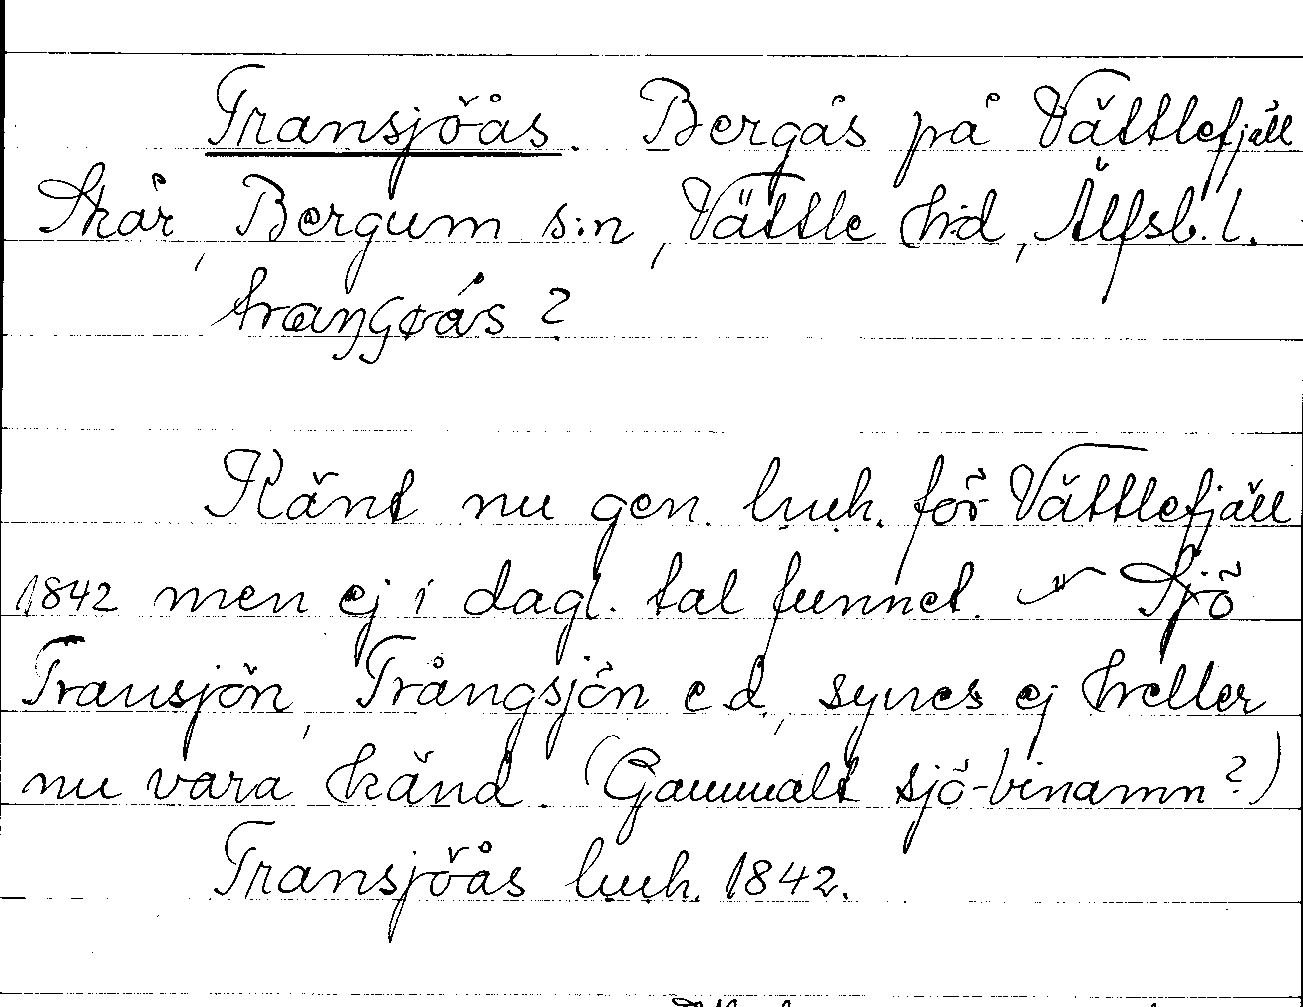 Transjöås. Bergås på Vättlefjäll
Skår, Bergum s:n, Vättle hd, Älfsb. l.
Känt nu gen. l.u.h. för Vättlefjäll
1842 men ej i dagl. tal funnet. Sjö
Transjön, Trångsjön e d, synes ej heller
nu vara känd. (Gammalt sjö-binamn?)
Transjöås l.u.h. 1842.